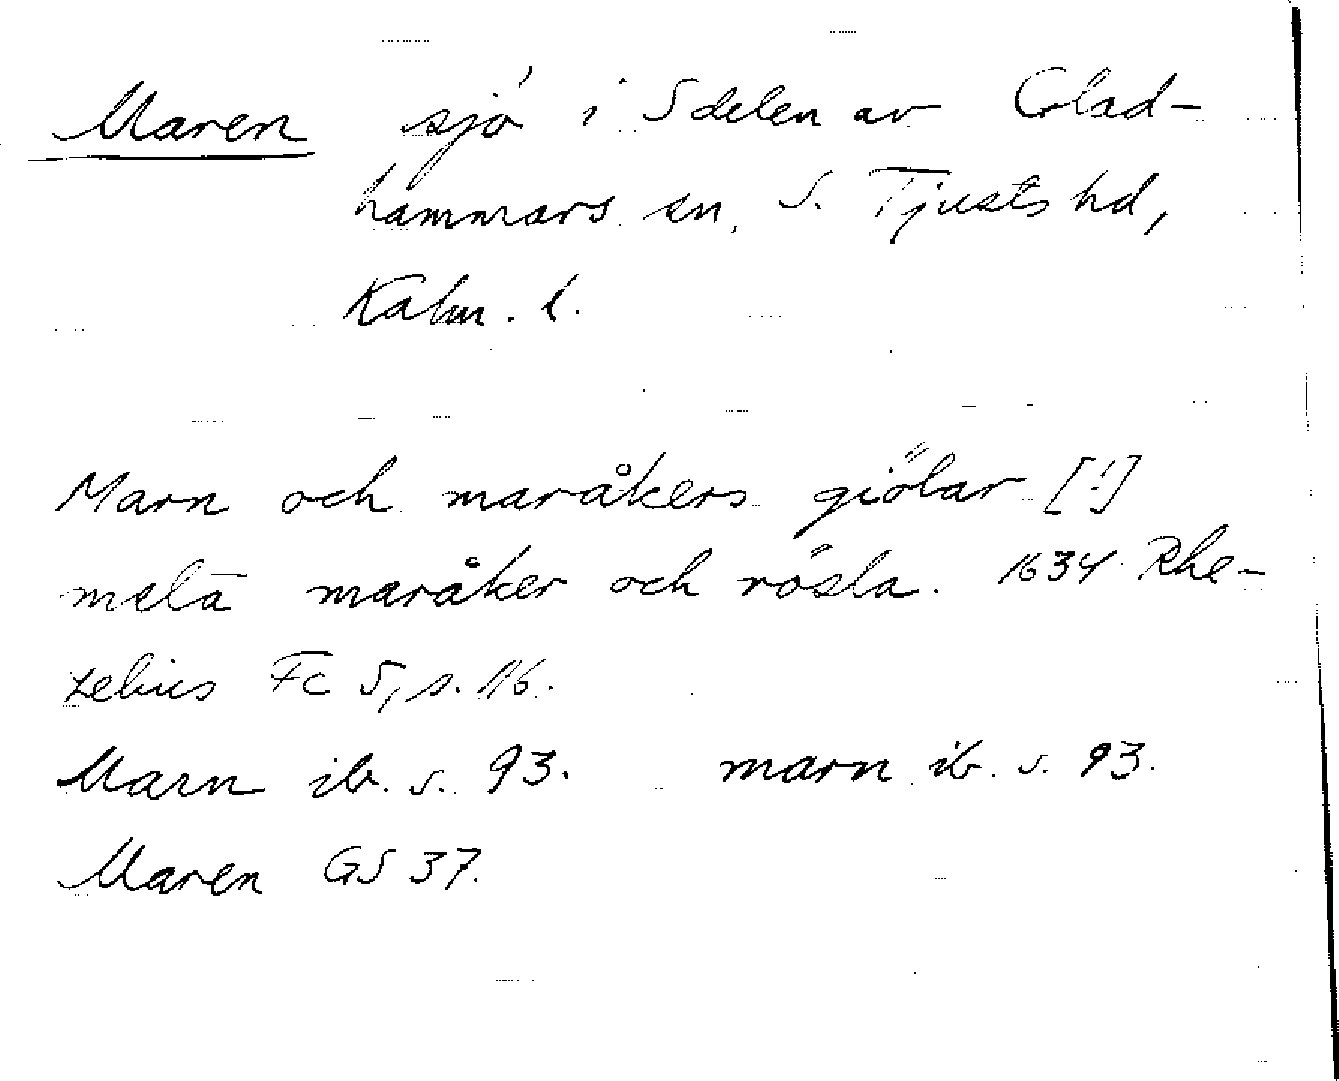 Maren sjö i S delen av Glad-
hammars sn, S. Tjusts hd,
Kalm. l.
Marn och maråkers giölar [!]
melā maråker och rösla. 1634 Rhe-
zelius Fc 5, s. 16.
Marn ib. s. 93. marn ib. s. 93.
Maren GS 37.